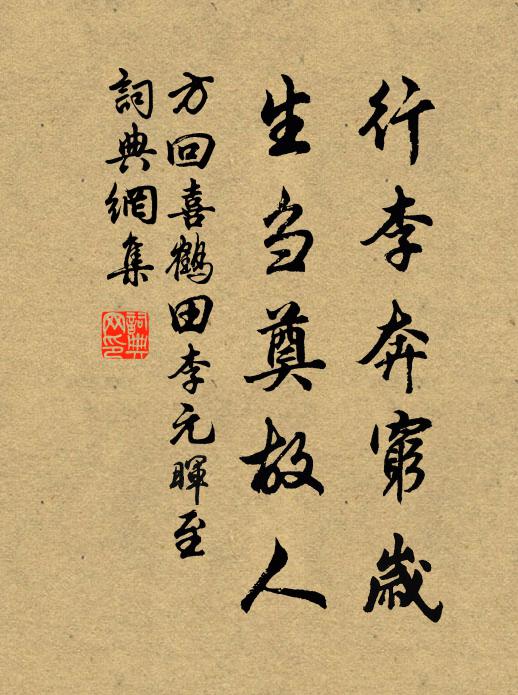 行李奔窮歲
生刍奠故人
方回喜鶴田李元暉至
詞典網集
詞典网印